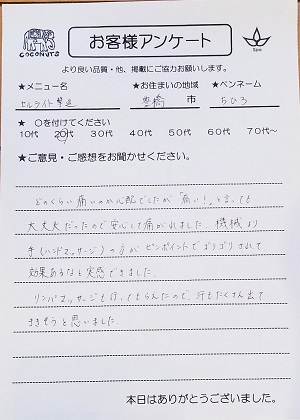 COCONUTS
お客様アンケート
Spa
より良い品質・他、掲載にご協力お願いします。
★メニュー名 ★お住まいの地域 ★ペンネーム
セルライト撃退 豊橋 市 ちひろ
★ 〇を付けてください
10代 20代 30代 40代 50代 60代 70代~
★ご意見・ご感想をお聞かせください。
どのくらい痛いのか心配でしたが「痛い!」と言っても
大丈夫だったので安心して痛がれました。機械より
手(ハンドマッサージ)の方がピンポイントでゴリゴリされて
効果あるなと実感できました。
リンパマッサージも行ってもらえたので、汗もたくさん出て
きそうと思いました。
本日はありがとうございました。